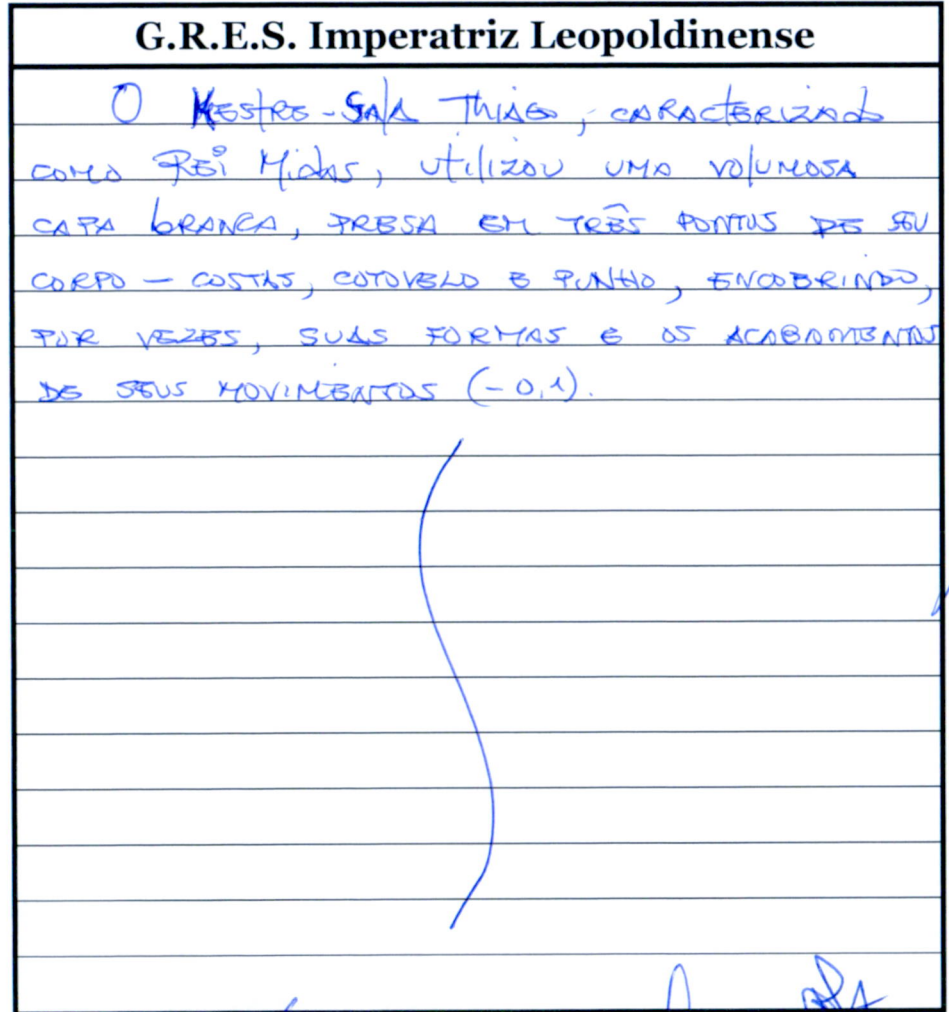 G.R.E.S. Imperatriz Leopoldinense
O MESTRE-SALA THIAGO, CARACTERIZADO
COMO REI MIDAS, UTILIZOU UMA VOLUMOSA
CAPA BRANCA, PRESA EM TRÊS PONTOS DE SEU
CORPO – COSTAS, COTOVELO E PUNHO, ENCOBRINDO,
POR VEZES, SUAS FORMAS E OS ACABAMENTOS
DE SEUS MOVIMENTOS (-0,1).